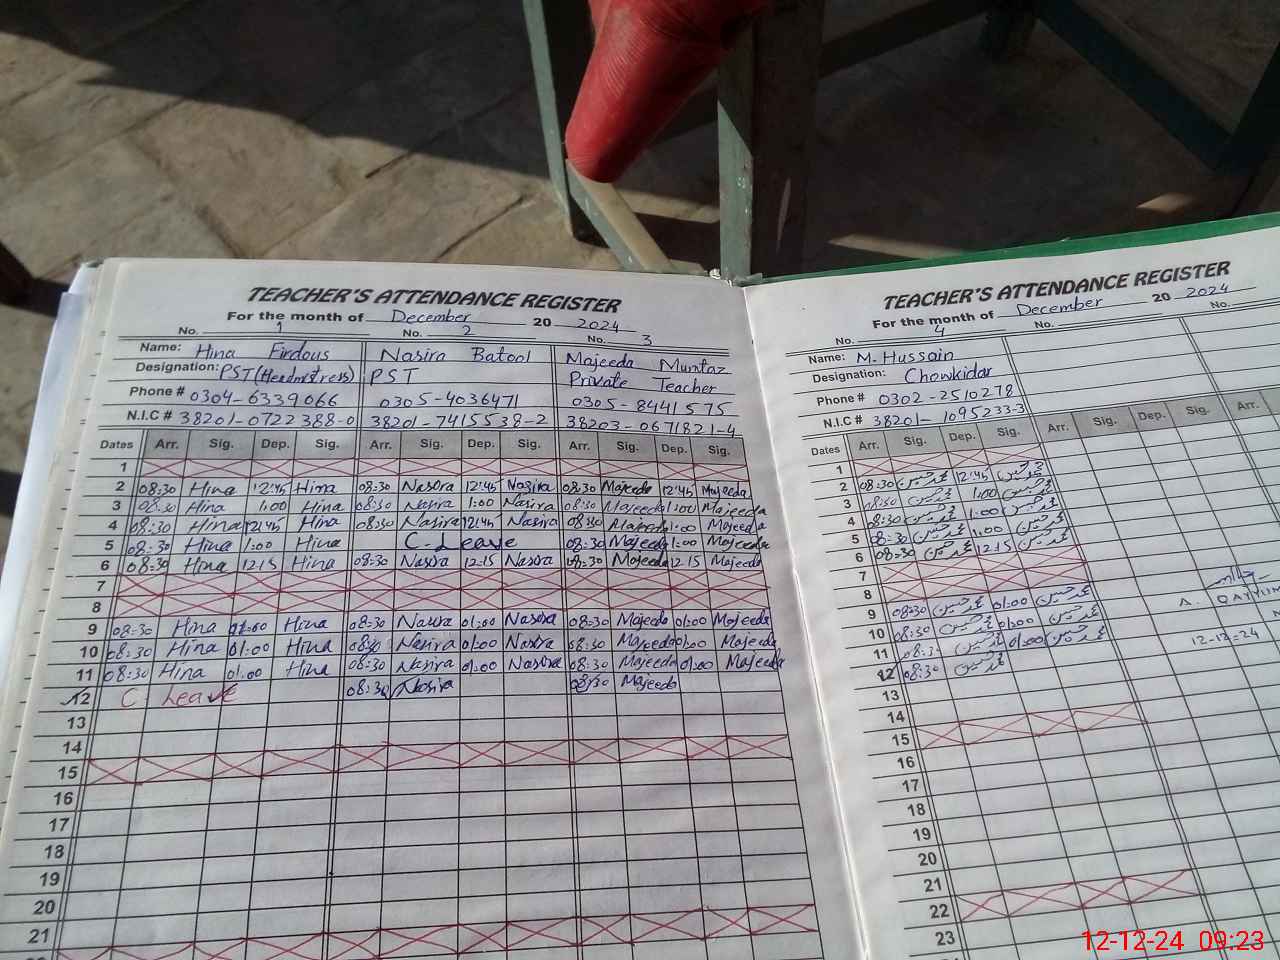 TEACHER'S ATTENDANCE REGISTER
For the month of December 20 2024
No. 1 No. 2 No. 3
Name: Hina Firdous Nasira Batool Majeeda Mumtaz
Designation: PST (Headmistress) PST Private Teacher
Phone # 0304-6339066 0305-4036471 0305-8441575
N.I.C # 38201-0722388-0 38201-7415538-2 38203-0671821-4
Dates Arr. Sig. Dep. Sig. Arr. Sig. Dep. Sig. Arr. Sig. Dep. Sig.
1
2 08:30 Hina 12:45 Hina 08:30 Nasira 12:45 Nasira 08:30 Majeeda 12:45 Majeeda
3 08:30 Hina 1:00 Hina 08:30 Nasira 1:00 Nasira 08:30 Majeeda 1:00 Majeeda
4 08:30 Hina 12:45 Hina 08:30 Nasira 12:45 Nasira 08:30 Majeeda 1:00 Majeeda
5 08:30 Hina 1:00 Hina C-Leave 08:30 Majeeda 1:00 Majeeda
6 08:30 Hina 12:15 Hina 08:30 Nasira 12:15 Nasira 08:30 Majeeda 12:15 Majeeda
7
8
9 08:30 Hina Hina 08:30 Nasira 01:00 Nasira 08:30 Majeeda 01:00 Majeeda
10 08:30 Hina 01:00 Hina 08:30 Nasira 01:00 Nasira 08:30 Majeeda 01:00 Majeeda
11 08:30 Hina 01:00 Hina 08:30 Nasira 01:00 Nasira 08:30 Majeeda 01:00 Majeeda
12 C Leave 08:30 Nasira 08:30 Majeeda
13
14
15
16
17
18
19
20
21
TEACHER'S ATTENDANCE REGISTER
For the month of December 20 2024
4 No. No.
Name: M. Hussain
Designation: Chowkidar
Phone # 0302-2510278
N.I.C # 38201-1095233-3
Dates Arr. Sig. Dep. Sig. Arr. Sig. Dep. Sig. Arr.
1
2 08:30 محمد حسین 12:45 محمد حسین
3 08:30 محمد حسین 1:00 محمد حسین
4 08:30 محمد حسین 1:00 محمد حسین
5 08:30 محمد حسین 1:00 محمد حسین
6 08:30 محمد حسین 12:15 محمد حسین
7
8
9 08:30 محمد حسین 01:00 محمد حسین
10 08:30 محمد حسین 01:00 محمد حسین
11 08:30 محمد حسین 01:00 محمد حسین
12 08:30 محمد حسین
A. QAYYUM
12-12-24
13
14
15
16
17
18
19
20
21
22
23
12-12-24 09:23